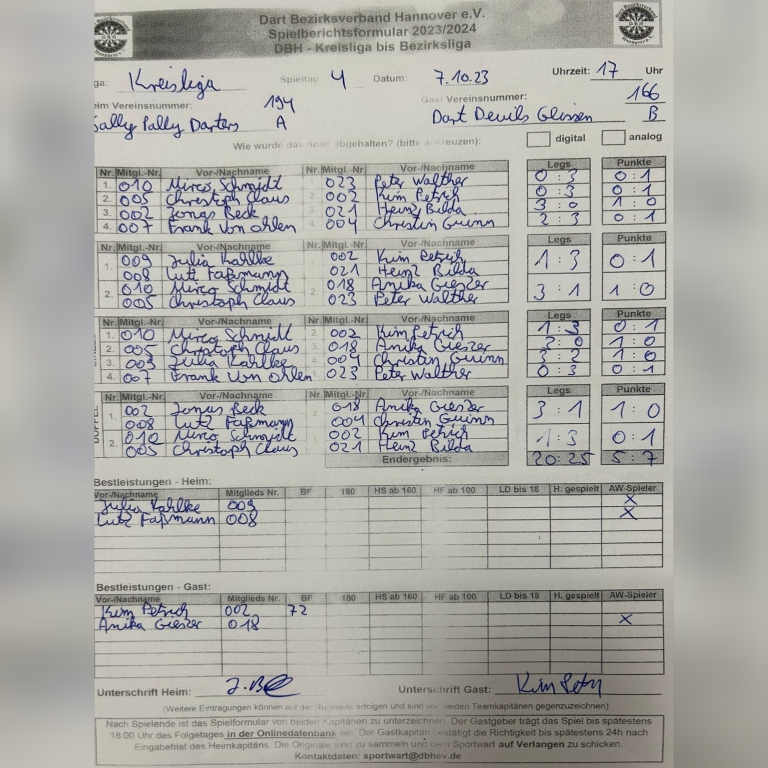 Dart Bezirksverband Hannover e.V.
Spielberichtsformular 2023/2024
DBH - Kreisliga bis Bezirksliga
ga: Kreisliga Spieltag 4 Datum: 7.10.23 Uhrzeit: 17 Uhr
eim Vereinsnummer: 194 Gast Vereinsnummer: 166
Sally Pally Darters A Dart Devils Glissen B
Wie wurde das Spiel abgehalten? (bitte ankreuzen): digital analog
Nr. Mitgl.-Nr. Vor-/Nachname Nr. Mitgl.-Nr. Vor-/Nachname Legs Punkte
1. 010 Mirco Schmidt 023 Peter Walther 0 : 3 0 : 1
2. 005 Christoph Claus 002 Kim Petrich 0 : 3 0 : 1
3. 002 Jonas Beck 3 021 Heinz Bilda 3 : 0 1 : 0
4. 007 Frank Von Ohlen 4 004 Christin Guinn 2 : 3 0 : 1
Nr. Mitgl.-Nr. Vor-/Nachname Nr. Mitgl.-Nr. Vor-/Nachname Legs Punkte
1. 009 Julia Kahlke 002 Kim Petrich 1 : 3 0 : 1
008 Lutz Faßmann 021 Heinz Bilda
2. 010 Mirco Schmidt 018 Anika Gieszer 3 : 1 1 : 0
005 Christoph Claus 023 Peter Walther
Nr. Mitgl.-Nr. Vor-/Nachname Nr. Mitgl.-Nr. Vor-/Nachname Legs Punkte
1. 010 Mirco Schmidt 002 Kim Petrich 1 : 3 0 : 1
2. 005 Christoph Claus 018 Anika Gieszer 3 : 0 1 : 0
3. 009 Julia Kahlke 004 Christin Guinn 3 : 2 1 : 0
4. 007 Frank Von Ohlen 023 Peter Walther 0 : 3 0 : 1
Nr. Mitgl.-Nr. Vor-/Nachname Nr. Mitgl.-Nr. Vor-/Nachname Legs Punkte
1. 002 Jonas Beck 018 Anika Gieszer 3 : 1 1 : 0
008 Lutz Faßmann 004 Christin Guinn
2. 010 Mirco Schmidt 002 Kim Petrich 1 : 3 0 : 1
005 Christoph Claus 021 Heinz Bilda
Endergebnis: 20:25 5 : 7
Bestleistungen - Heim:
Vor-/Nachname Mitglieds Nr. BF 180 HS ab 160 HF ab 100 LD bis 18 H. gespielt AW-Spieler
Julia Kahlke 009 X
Lutz Faßmann 008 X
Bestleistungen - Gast:
Vor-/Nachname Mitglieds Nr. BF 180 HS ab 160 HF ab 100 LD bis 18 H. gespielt AW-Spieler
Kim Petrich 002 72
Anika Gieszer 018 X
Unterschrift Heim: Unterschrift Gast:
(Weitere Eintragungen können auf der Rückseite erfolgen und sind von beiden Teamkapitänen gegenzuzeichnen)
Nach Spielende ist das Spielformular von beiden Kapitänen zu unterzeichnen. Der Gastgeber trägt das Spiel bis spätestens
18:00 Uhr des Folgetages in der Onlinedatenbank ein. Der Gastkapitän bestätigt die Richtigkeit bis spätestens 24h nach
Eingabefrist des Heimkapitäns. Die Originale sind zu sammeln und dem Sportwart auf Verlangen zu schicken.
Kontaktdaten: sportwart@dbhev.de